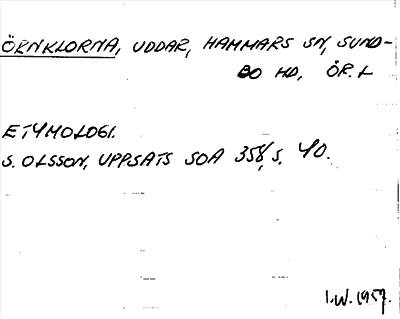 ÖRNKLORNA, UDDAR, HAMMARS SN, SUND-
BO HD, ÖR. L
ETYMOLOGI.
S. OLSSON, UPPSATS SOA 358, S. 40.
I.W. 1957.